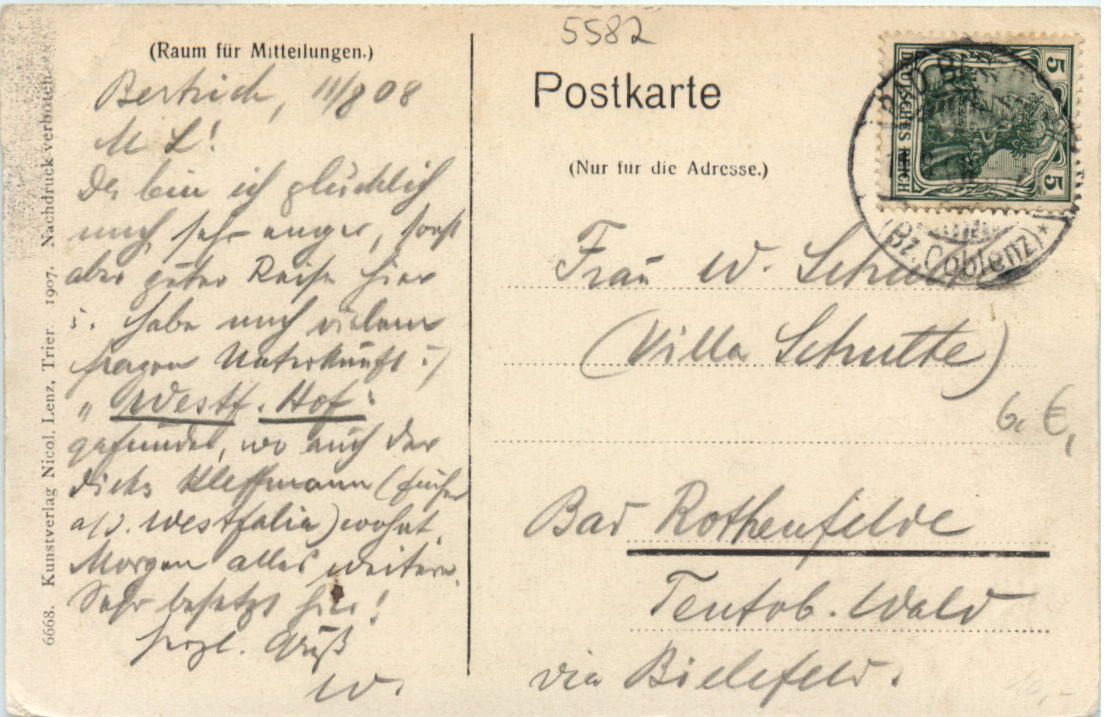 (Raum für Mitteilungen.)
Bertrich, 11/8 08
M. L!
Da bin ich glücklich
nach sehr enger, sonst
aber guter Reise hier
u. habe nach vielem
fragen Unterkunft i/
„Westf. Hof"
gefunden, wo auch der
dicke Kleffmann (früher
a/D. Westfalia) wohnt.
Morgen alles weitere.
Sehr besetzt hier!
Herzl. Gruß
W.
5582
Postkarte
(Nur für die Adresse.)
Frau W. Schutte
(Villa Schutte)
6. €,
Bad Rothenfelde
Teutob. Wald
via Bielefeld.
10,-
DEUTSCHES REICH
5 5
BAD
(Bz. Coblenz) *
6668. Kunstverlag Nicol. Lenz, Trier. 1907. Nachdruck verboten.